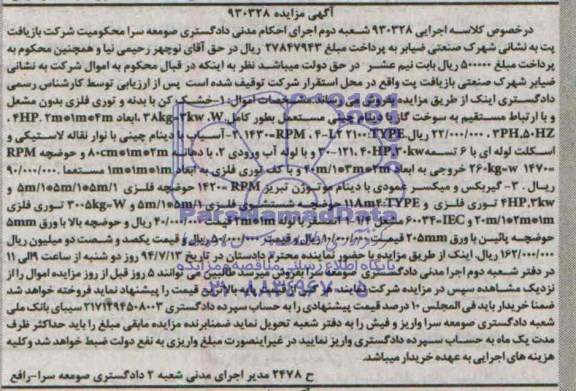 آگهی مزایده ۹۳۰۳۲۸
درخصوص کلاسه اجرایی ۹۳۰۳۲۸ شعبه دوم اجرای احکام مدنی دادگستری صومعه سرا محکومیت شرکت بازیافت
پت به نشانی شهرک صنعتی ضیابر به پرداخت مبلغ ۲۷۸۴۷۹۴۳ ریال در حق آقای نوچهر رحیمی نیا و همچنین محکوم به
پرداخت مبلغ ۵۰۰۰۰۰ ریال بابت نیم عشر در حق دولت میباشد نظر به اینکه در قبال محکوم به اموال شرکت به نشانی
ضیابر شهرک صنعتی بازیافت پت واقع در محل استقرار شرکت توقیف شده است پس از ارزیابی توسط کارشناس رسمی
دادگستری اینک از طریق مزایده بفروش می رساند مشخصات اموال: ۱-خشک کن با بدنه و توری فلزی بدون مشعل
و با ارتباط مستقیم به سوخت گاز با دینام چینی مستعمل بطور کامل ۳۸kg=۳kw .W، ابعاد ۲m*۱m*۴m .۴HP
۳PH,۵۰HZ . ۲۲/۰۰۰/۰۰۰ ریال ۲-آسیاب با دینام چینی با نوار نقاله لاستیکی و
اسکلت لوله ای با ۶ تسمه و با لوله آب ورودی ۲، با دهانه ۸۰cm*۲m و حوضچه RPM
۱۴۷۰= ۲۶۰kg=w خروجی به ابعاد و با کف توری فلزی به ابعاد ۱m*۱m*۱m مستعمل ۹۰/۰۰۰/۰۰۰
ریال. ۳- گیربکس و میکسر عمودی با دینام موتوژن تبریز RPM=۱۴۲۰ حوضچه فلزی
۴HP,۳kw توری فلزی و ۱۱Amf,TYPE حوضچه شستشوی فلزی ۳۰۰kg=W توری فلزی
۲۰m/۱*۲m*۱m و IEC=۶۰۰۳۴ ۴۰/۰۰۰/۰۰۰ ریال و حوضچه بالا با ورق ۵mm
حوضچه پائین با ورق ۲۰۵mm قیمت یکصد و شصت دو میلیون ریال
۱۶۲/۰۰۰/۰۰۰ ریال. اینک از طریق مزایده با حضور نماینده محترم دادستان در تاریخ ۹۴/۷/۱۳ روز دو شنبه از ساعت ۹الی ۱۱
در دفتر شعبه دوم اجرا مدنی دادگستری صومعه سرا بفروش می توانند ۵ روز قبل از روز مزایده اموال را از
نزدیک مشاهده سپس در مزایده شرکت نمایند قیمت را پیشنهاد نماید فروخته خواهد شد
ضمنا خریدار باید فی المجلس ۱۰ درصد قیمت پیشنهادی را به حساب سپرده دادگستری ۲۱۷۱۲۹۴۵۰۸۰۰۳ سیبای بانک ملی
شعبه دادگستری صومعه سرا واریز و فیش را به دفتر شعبه تحویل نماید ضمنابرنده مزایده مابقی مبلغ را باید حداکثر ظرف
مدت یک ماه به حساب سپرده دادگستری واریز نمایید در غیراینصورت مبلغ واریزی به نفع دولت ضبط خواهد شد وکلیه
هزینه های اجرایی به عهده خریدار میباشد.
ح ۲۴۷۸ مدیر اجرای مدنی شعبه ۲ دادگستری صومعه سرا-رافع
ParsNamadData
پایگاه اطلاع رسانی مناقصه و مزایده
۰۲۱-۸۸۳۴۹۶۷۰-۵